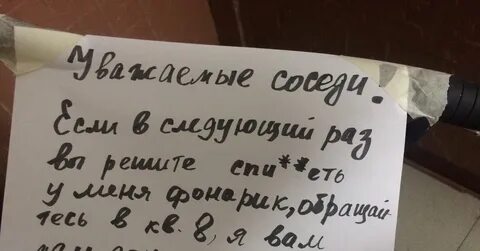 Уважаемые соседи.
Если в следующий раз
вы решите спи**еть
у меня фонарик, обращай
тесь в кв. 8, я вам